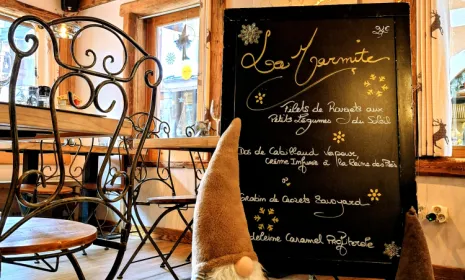 24€
La Marmite
Filets de Rougets aux
Petits Légumes du Soleil
Dos de Cabillaud Vapeur
Crème Infusée à la Reine des Prés
Gratin de Crozets Savoyard
Madeleine Caramel Profiterole